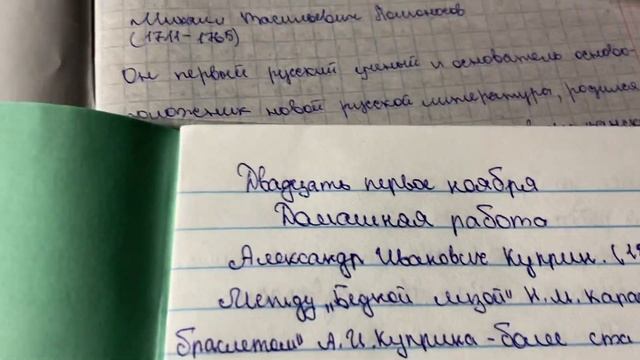 Михаил Васильевич Ломоносов
(1711-1765)
Он первый русский ученый и основатель осново-
положник новой русской литературы, родился
Двадцать первое ноября
Домашная работа
Александр Иванович Куприн. (1
Между „Бедной лизой" Н.М. Кара
браслетом" А.И. Куприна - более ста